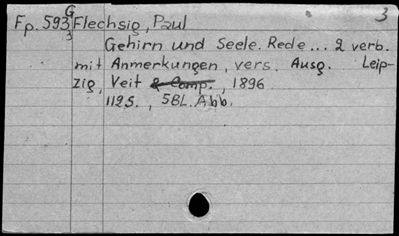 Fp. 593 G Flechsig, Paul 3
3 Gehirn und Seele. Rede ... 2 verb.
mit Anmerkungen, vers. Ausg. Leip-
zig, Veit & Comp., 1896
112 S., 5 Bl. Abb.